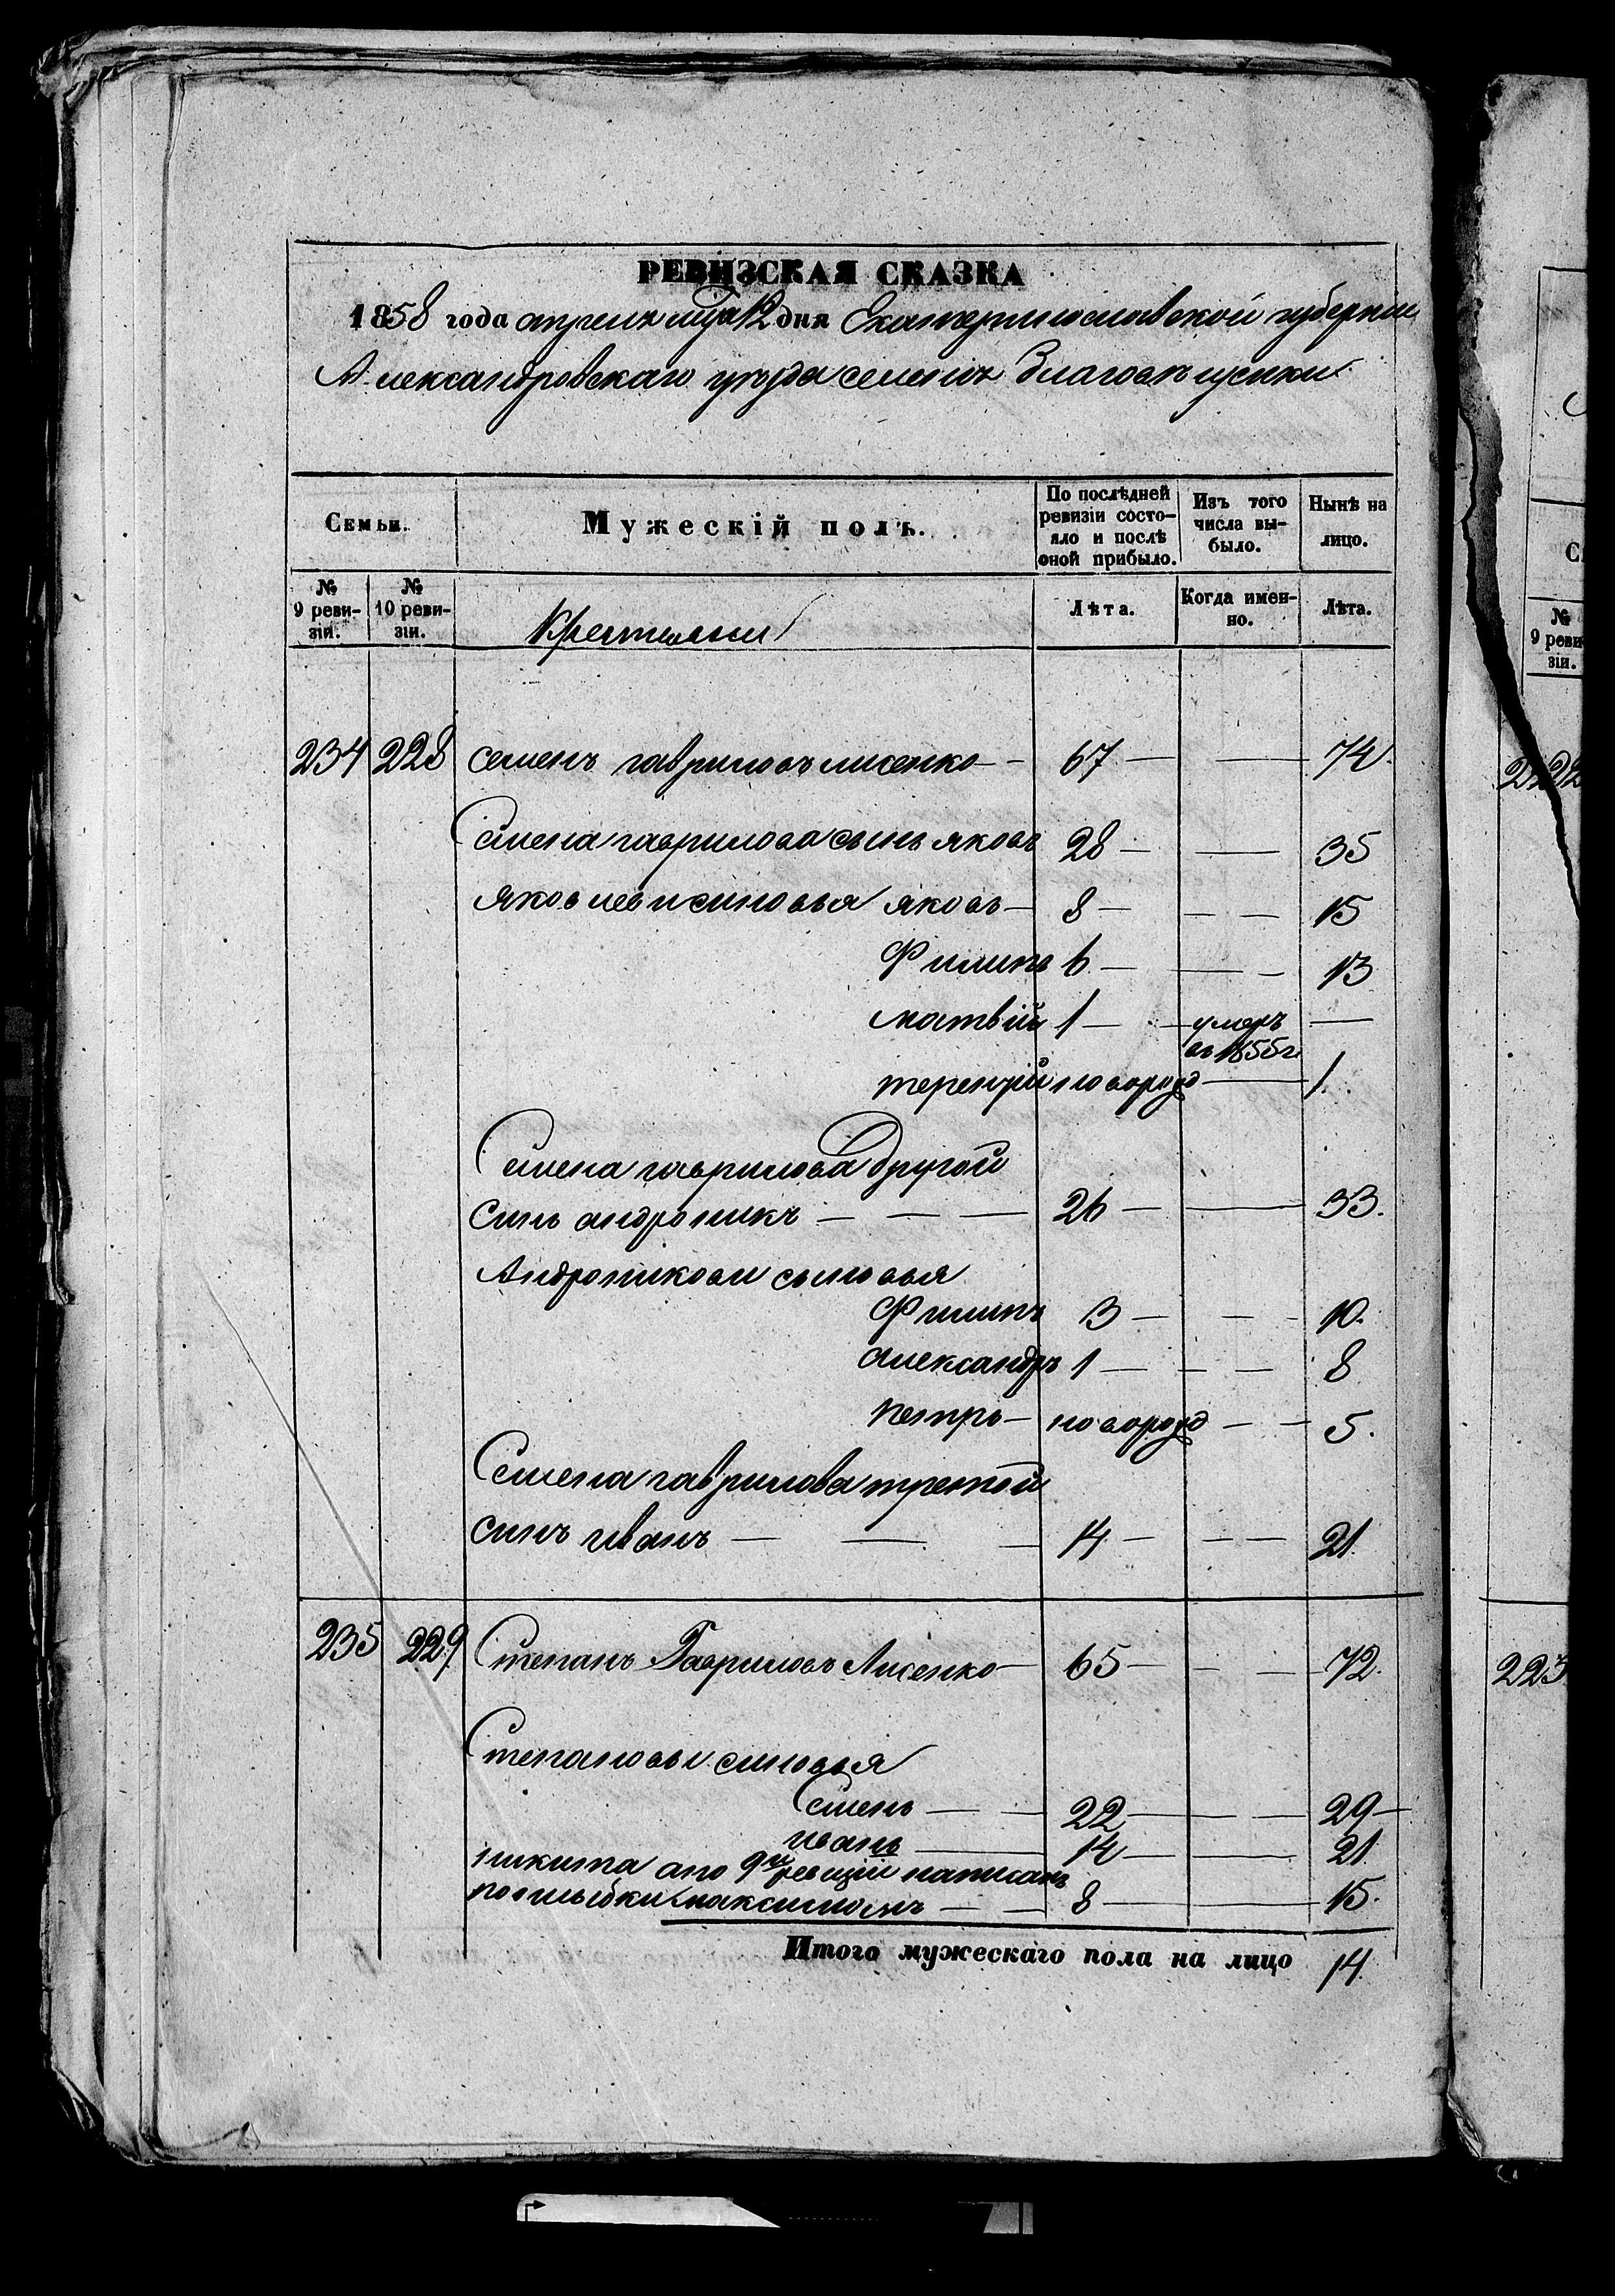 РЕВИЗСКАЯ СКАЗКА
1858 года апреля мца 12 дня Екатеринославской губернии
Александровскаго уѣзда селенія Благовѣщенки
Семьи.
Мужескій полъ.
По послѣдней ревизіи состо-
яло и послѣ
оной прибыло.
Изъ того
числа вы-
было.
Нынѣ на
лицо.
№
9 реви-
зіи.
№
10 реви-
зіи.
Крестьяне
Лѣта.
Когда имен-
но.
Лѣта.
234 228 семенъ гавриловъ лисенко — 67 — — 74.
Семена гаврилова сынъ яковъ 28 — — 35
яковлеви синовья яковъ — 8 — — — 15
Филипъ 6 — — — 13
матвій 1 — — умеръ —
въ 1855 г.
терентій новорожд — 1.
Семена гаврилова другой
синъ андроникъ — — — 26 — — 33.
Андроникови сыновья
Филипъ 3 — — — 10.
александръ 1 — — — 8
петръ — новорожд — — 5.
Семена гаврилова третой
синъ иванъ — — — 14 — — — 21.
235 229 Степанъ Гавриловъ Лисенко — 65 — — — 72.
Степановы синовья
Семенъ — — 22 — — — 29 —
иванъ — 14 — — — 21
никита апо 9й ревизіи написанъ
поошыбки максимомъ — — 8 — — 15.
Итого мужескаго пола на лицо 14.
С
№
9 реви
зіи.
223